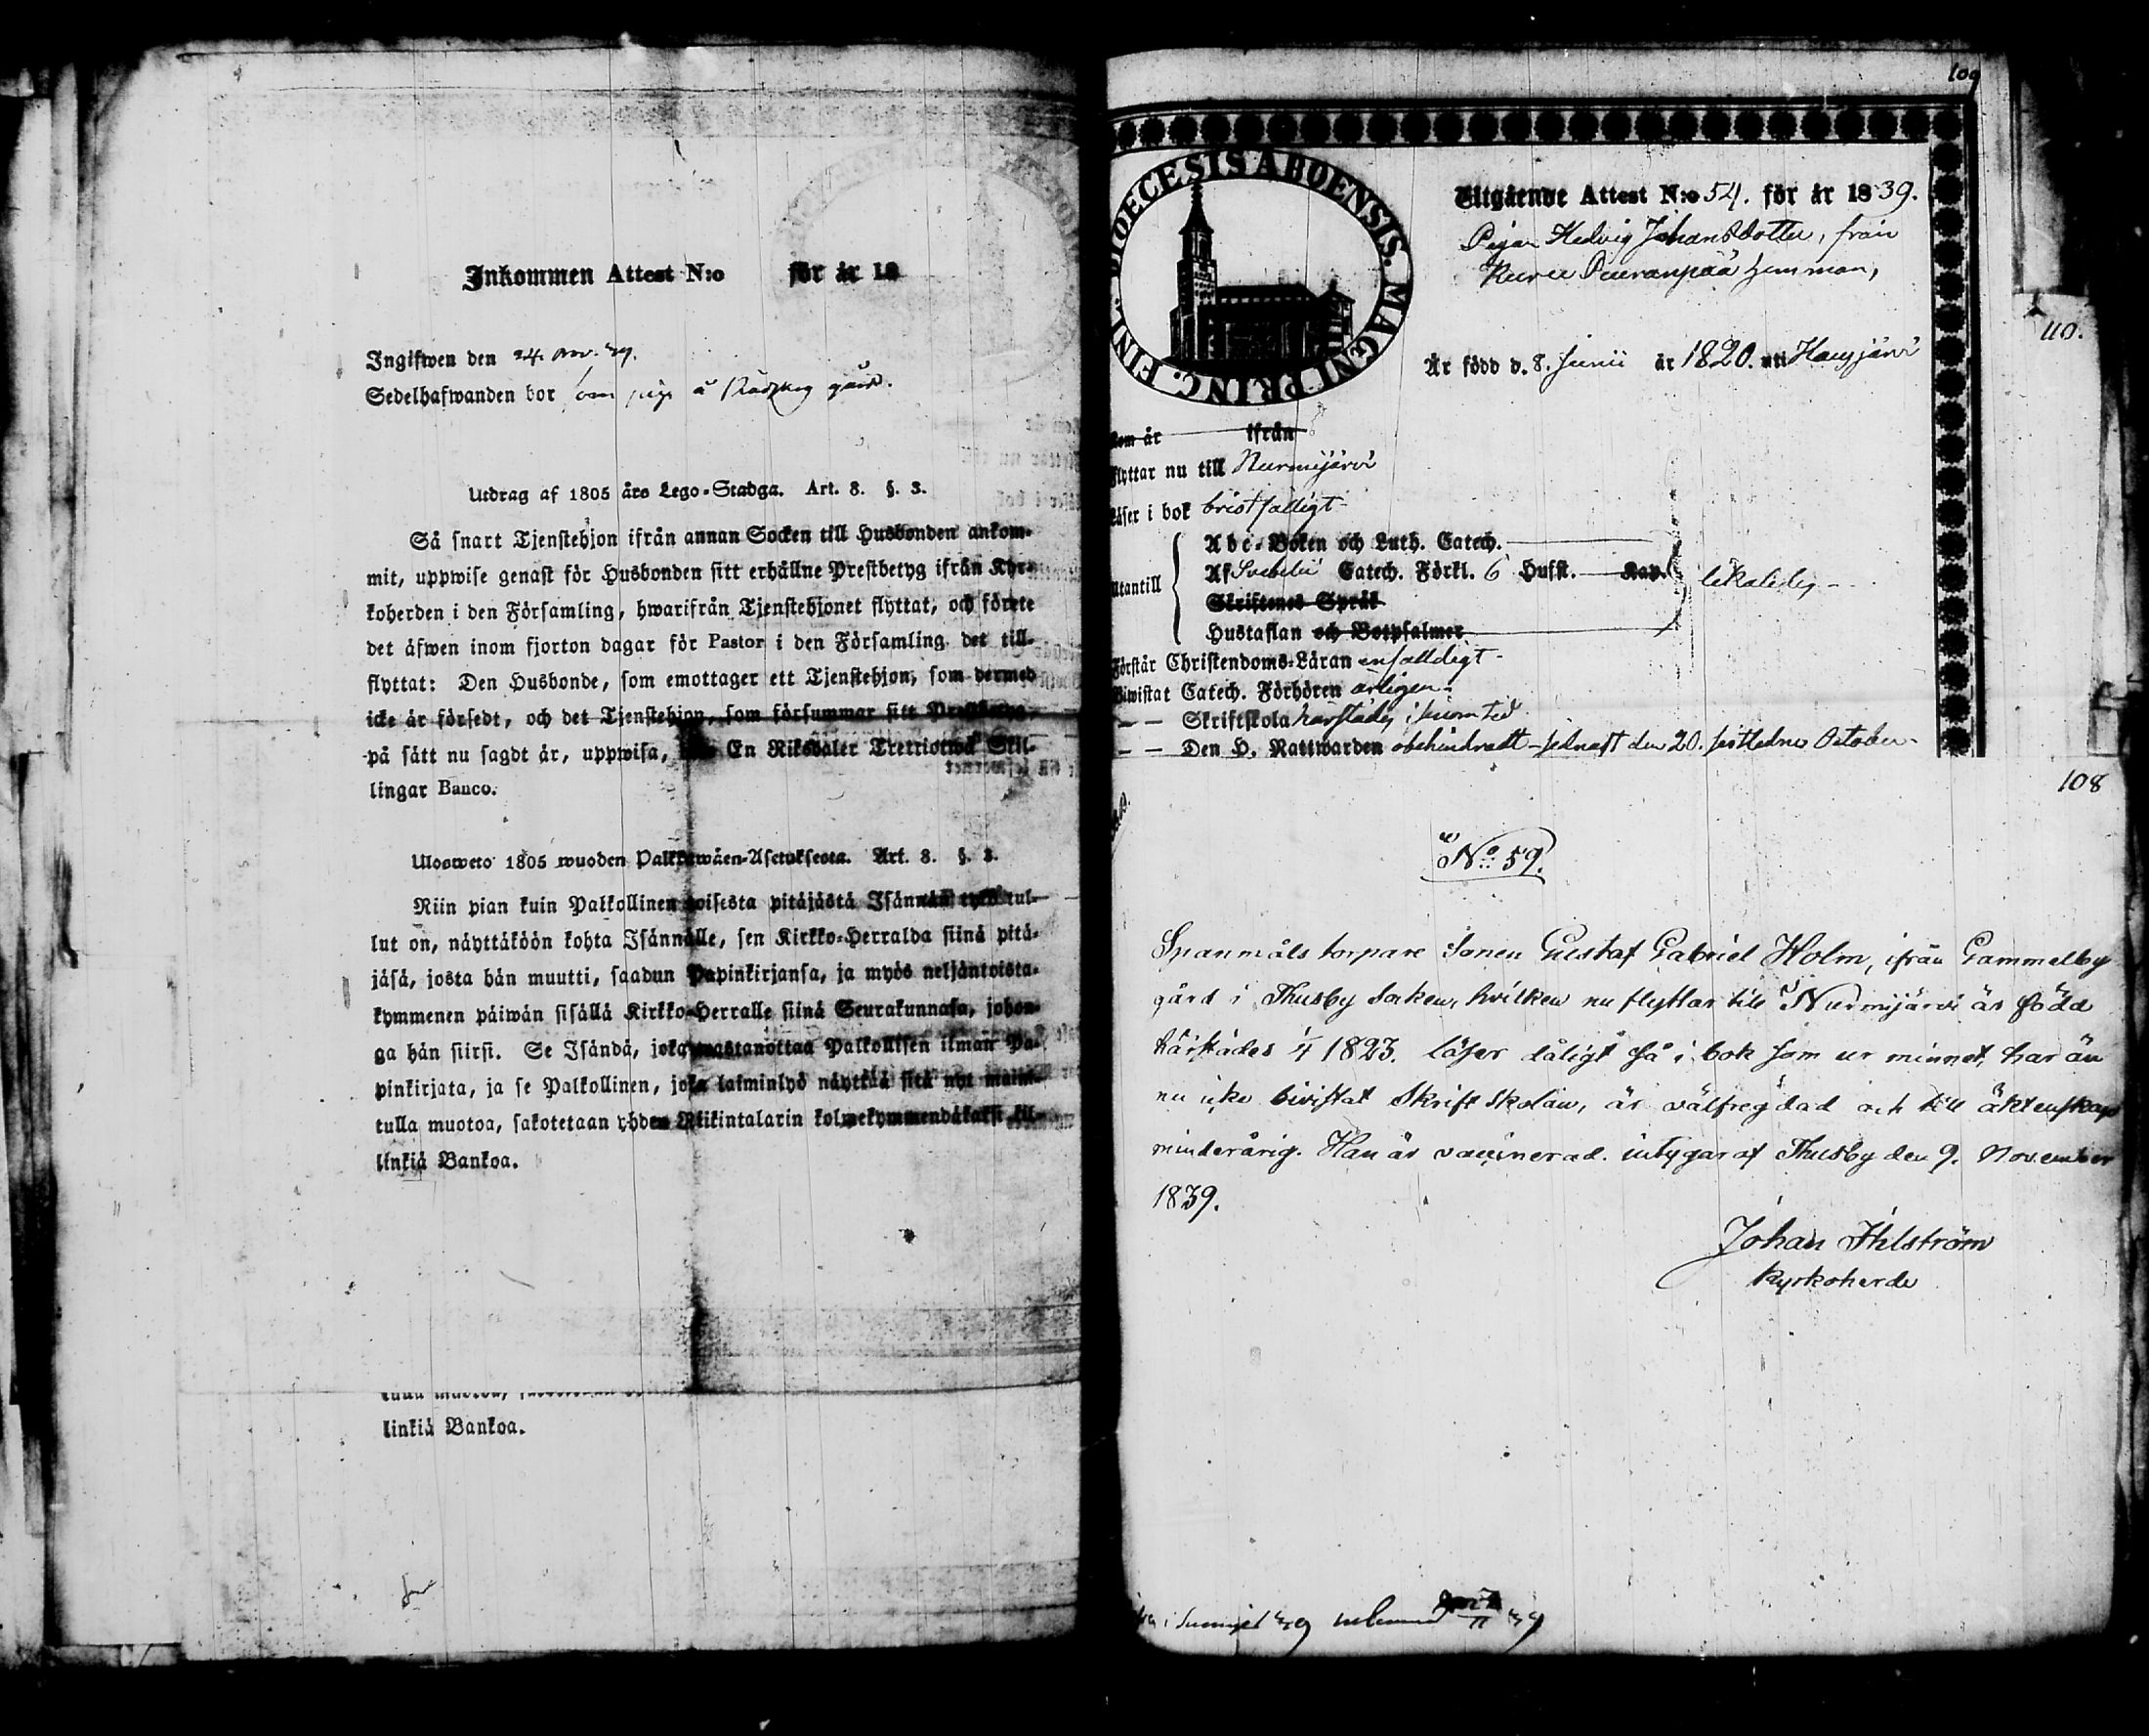 Inkommen Attest N:o för år 18
Ingifwen den 24. Nov. 39.
Sedelhafwanden bor som piga å gård.
Utdrag af 1805 års Lego-Stadga. Art. 8. §. 3.
Så snart Tjenstehjon ifrån annan Socken till Husbonden ankom-
mit, uppwise genast för Husbonden sitt erhållne Prestbetyg ifrån Kyr-
koherden i den Församling, hwarifrån Tjenstehjonet flyttat, och förete
det äfwen inom fjorton dagar för Pastor i den Församling det till-
flyttat: Den Husbonde, som emottager ett Tjenstehjon, som dermed
icke är försedt, och det Tjenstehjon, som försummar sitt Prestbetyg,
på sätt nu sagdt är, uppwisa, En Riksdaler Trettiotwå Skil-
lingar Banco.
Ulosweto 1805 wuoden Palkkawäen-Asetuksesta. Art. 8. §. 3.
Niin pian kuin Palkollinen toisesta pitäjästä Isännän tykö tul-
lut on, näyttäköön kohta Isännälle, sen Kirkko-Herralda siinä pitä-
jäsä, josta hän muutti, saadun Papinkirjansa, ja myös neljäntoista-
kymmenen päiwän sisällä Kirkko-Herralle siinä Seurakunnasa, johon-
ga hän siirsi. Se Isändä, joka wastanottaa Palkollisen ilman Pa-
pinkirjata, ja se Palkollinen, joka laiminlyö näyttää sitä nyt maini-
tulla muotoa, sakotetaan yhden Riikintalarin kolmekymmendäkaksi kil-
linkiä Bankoa.
linkiä Bankoa.
109
DIOECESIS ABOENSIS. MAGNI PRINC. FINL.
Utgående Attest N:o 54. för år 1839.
Pigan Hedvig Johansdotter, från
Puuranpää hemman,
Är född d. 8. Junii år 1820. uti Hausjärvi
110.
kom år ifrån
flyttar nu till Nurmijärvi
Läser i bok bristfälligt
Utantill
Abc-Boken och Luth. Catech.
Af Svebelii Catech. Förkl. 6 Hufst. Kap.
Skriftenes Språk
Hustaflan och Botpsalmer
likaledes
Förstår Christendoms-Läran enfaldigt
Biwistat Catech. Förhören årligen
— — Skriftskola härstädes i sinom tid
— — Den H. Nattwarden obehindradt sednast den 20. sistledne October
108
No. 59.
Spanmåls torpare Sonen Gustaf Gabriel Holm, ifrån Gammelby
gård i Thusby Socken, hvilken nu flyttar till Nurmijärvi är född
härstädes 1823. läser dåligt så i bok som ur minnet, har än
nu icke bivistat Skrift skolan, är välfregdad och till äktenskap
minderårig. Han är vaccinerad. intygar af Thusby den 9. November
1839.
Johan Ihlström
Kyrkoherde